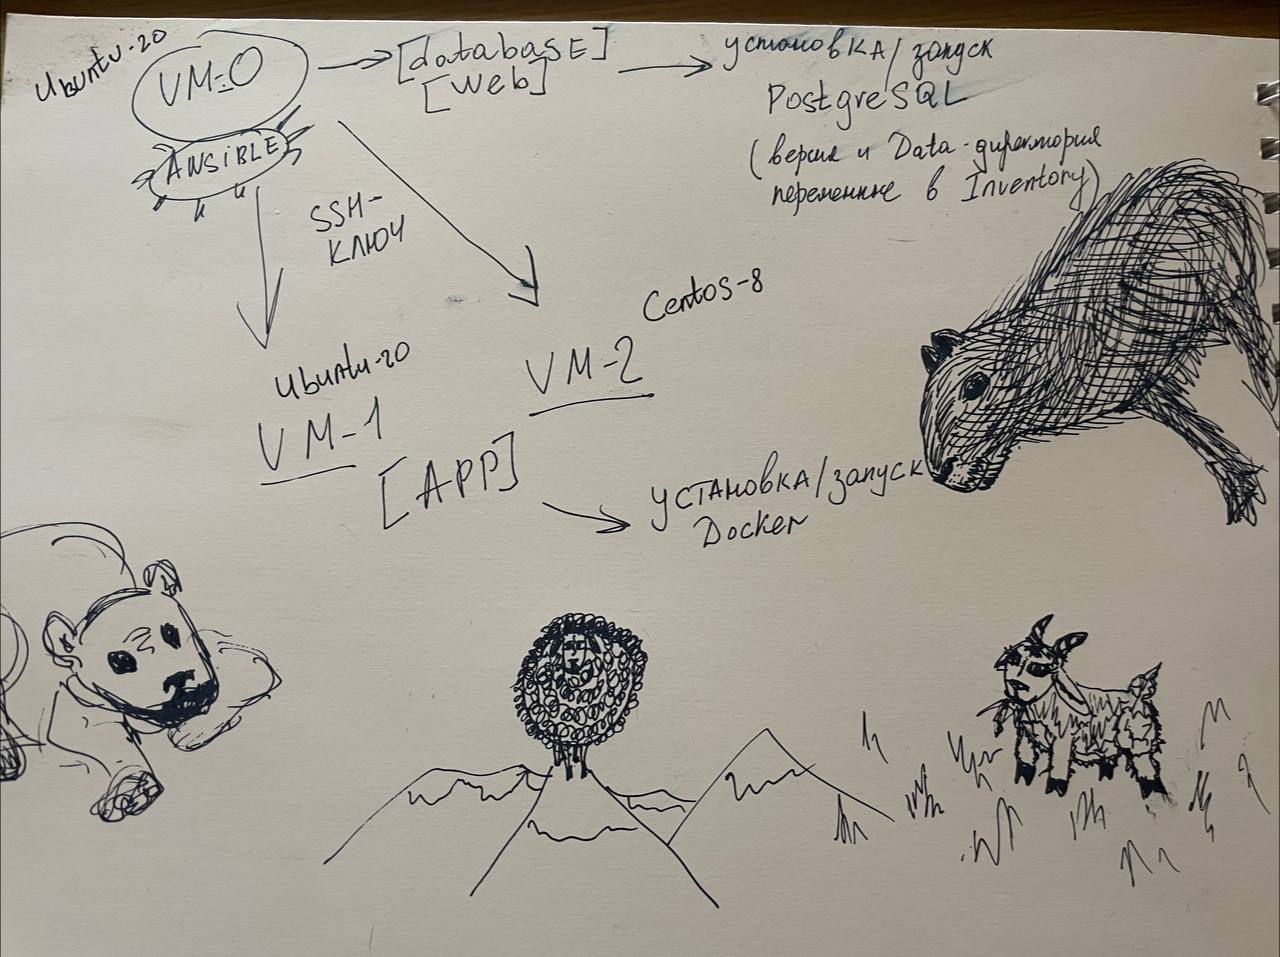 Ubuntu-20
VM-0
ANSiBLE
[databasE]
[Web]
установка/запуск
PostgreSQL
(версия и Data-директория
переменные в Inventory)
SSH-
КЛЮЧ
Centos-8
Ubuntu-20
VM-2
VM-1
[APP]
УСТАНОВКА/запуск
Docker